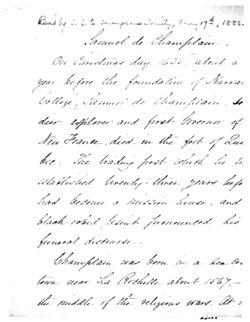 Read by
Society, May 19th, 1882.
Samuel de Champlain.
On Christmas day 1635, about a
year before the foundation of Harvard
College, Samuel de Champlain, sol
dier, explorer and first Governor of
New France, died in the fort of Que
bec. The trading post which he had
established twenty-three years before
had become a mission house, and a
black robed Jesuit pronounced his
funeral discourse.
Champlain was born in a sea coast
town near La Rochelle about 1567,—
the middle of the religious wars. At